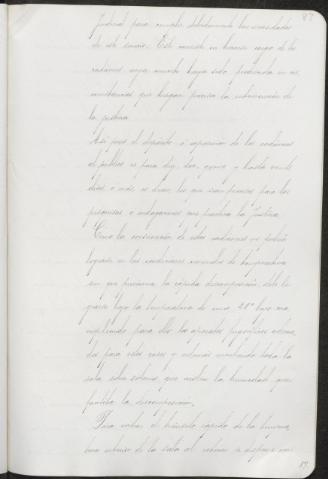 87
Judicial para cumplir debidamente las necesidades
de este servicio. Este consiste en hacerse cargo de los
cadáveres cuya muerte haya sido producida en cir-
cunstancias que hagan precisa la intervención de
la justicia.
Así pues el depósito o exposición de los cadáveres
al público es para diez, doce, quince y hasta veinte
días o más, es decir, los que sean precisos para las
pesquisas o indagaciones que practica la Justicia.
Como la conservación de estos cadáveres no podría
lograrse en las condiciones normales de temperatura
sin que principie la rápida descomposición, debe lo-
grarse bajo la temperatura de unos 28º bajo cero
empleando para ello los aparatos frigoríficos
para estos casos y además ventilando toda la
sala sobre que la humedad que
facilita la descomposición.
Para evitar el tránsito rápido de la
interior de la sala al exterior se dispone una
87.